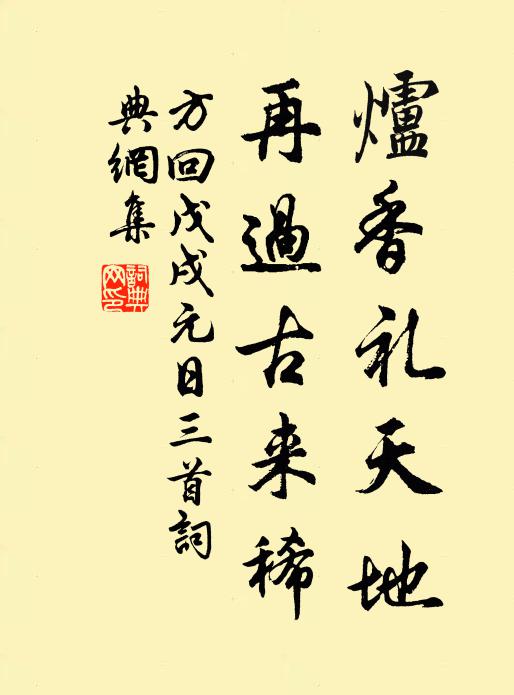 爐香礼天地
再過古来稀
方回戊戌元日三首詞
典網集
詞典
网印